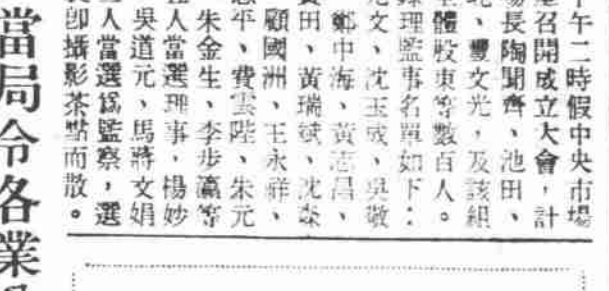 午二時假中央市場
召開成立大會，計
長陶聞齊、池田、
、豐文光，及該組
體股東等數百人。
理監事名單如下：
文、沈玉成、吳敬
、鄭中海、黃志昌、
田、黃瑞斌、沈森
、顧國洲、王永祥、
平、費雲陞、朱元
、朱金生、李步瀛等
人當選理事，楊妙
、吳道元、馬蔣文娟
人當選為監察，選
即攝影茶點而散。
當局令各業